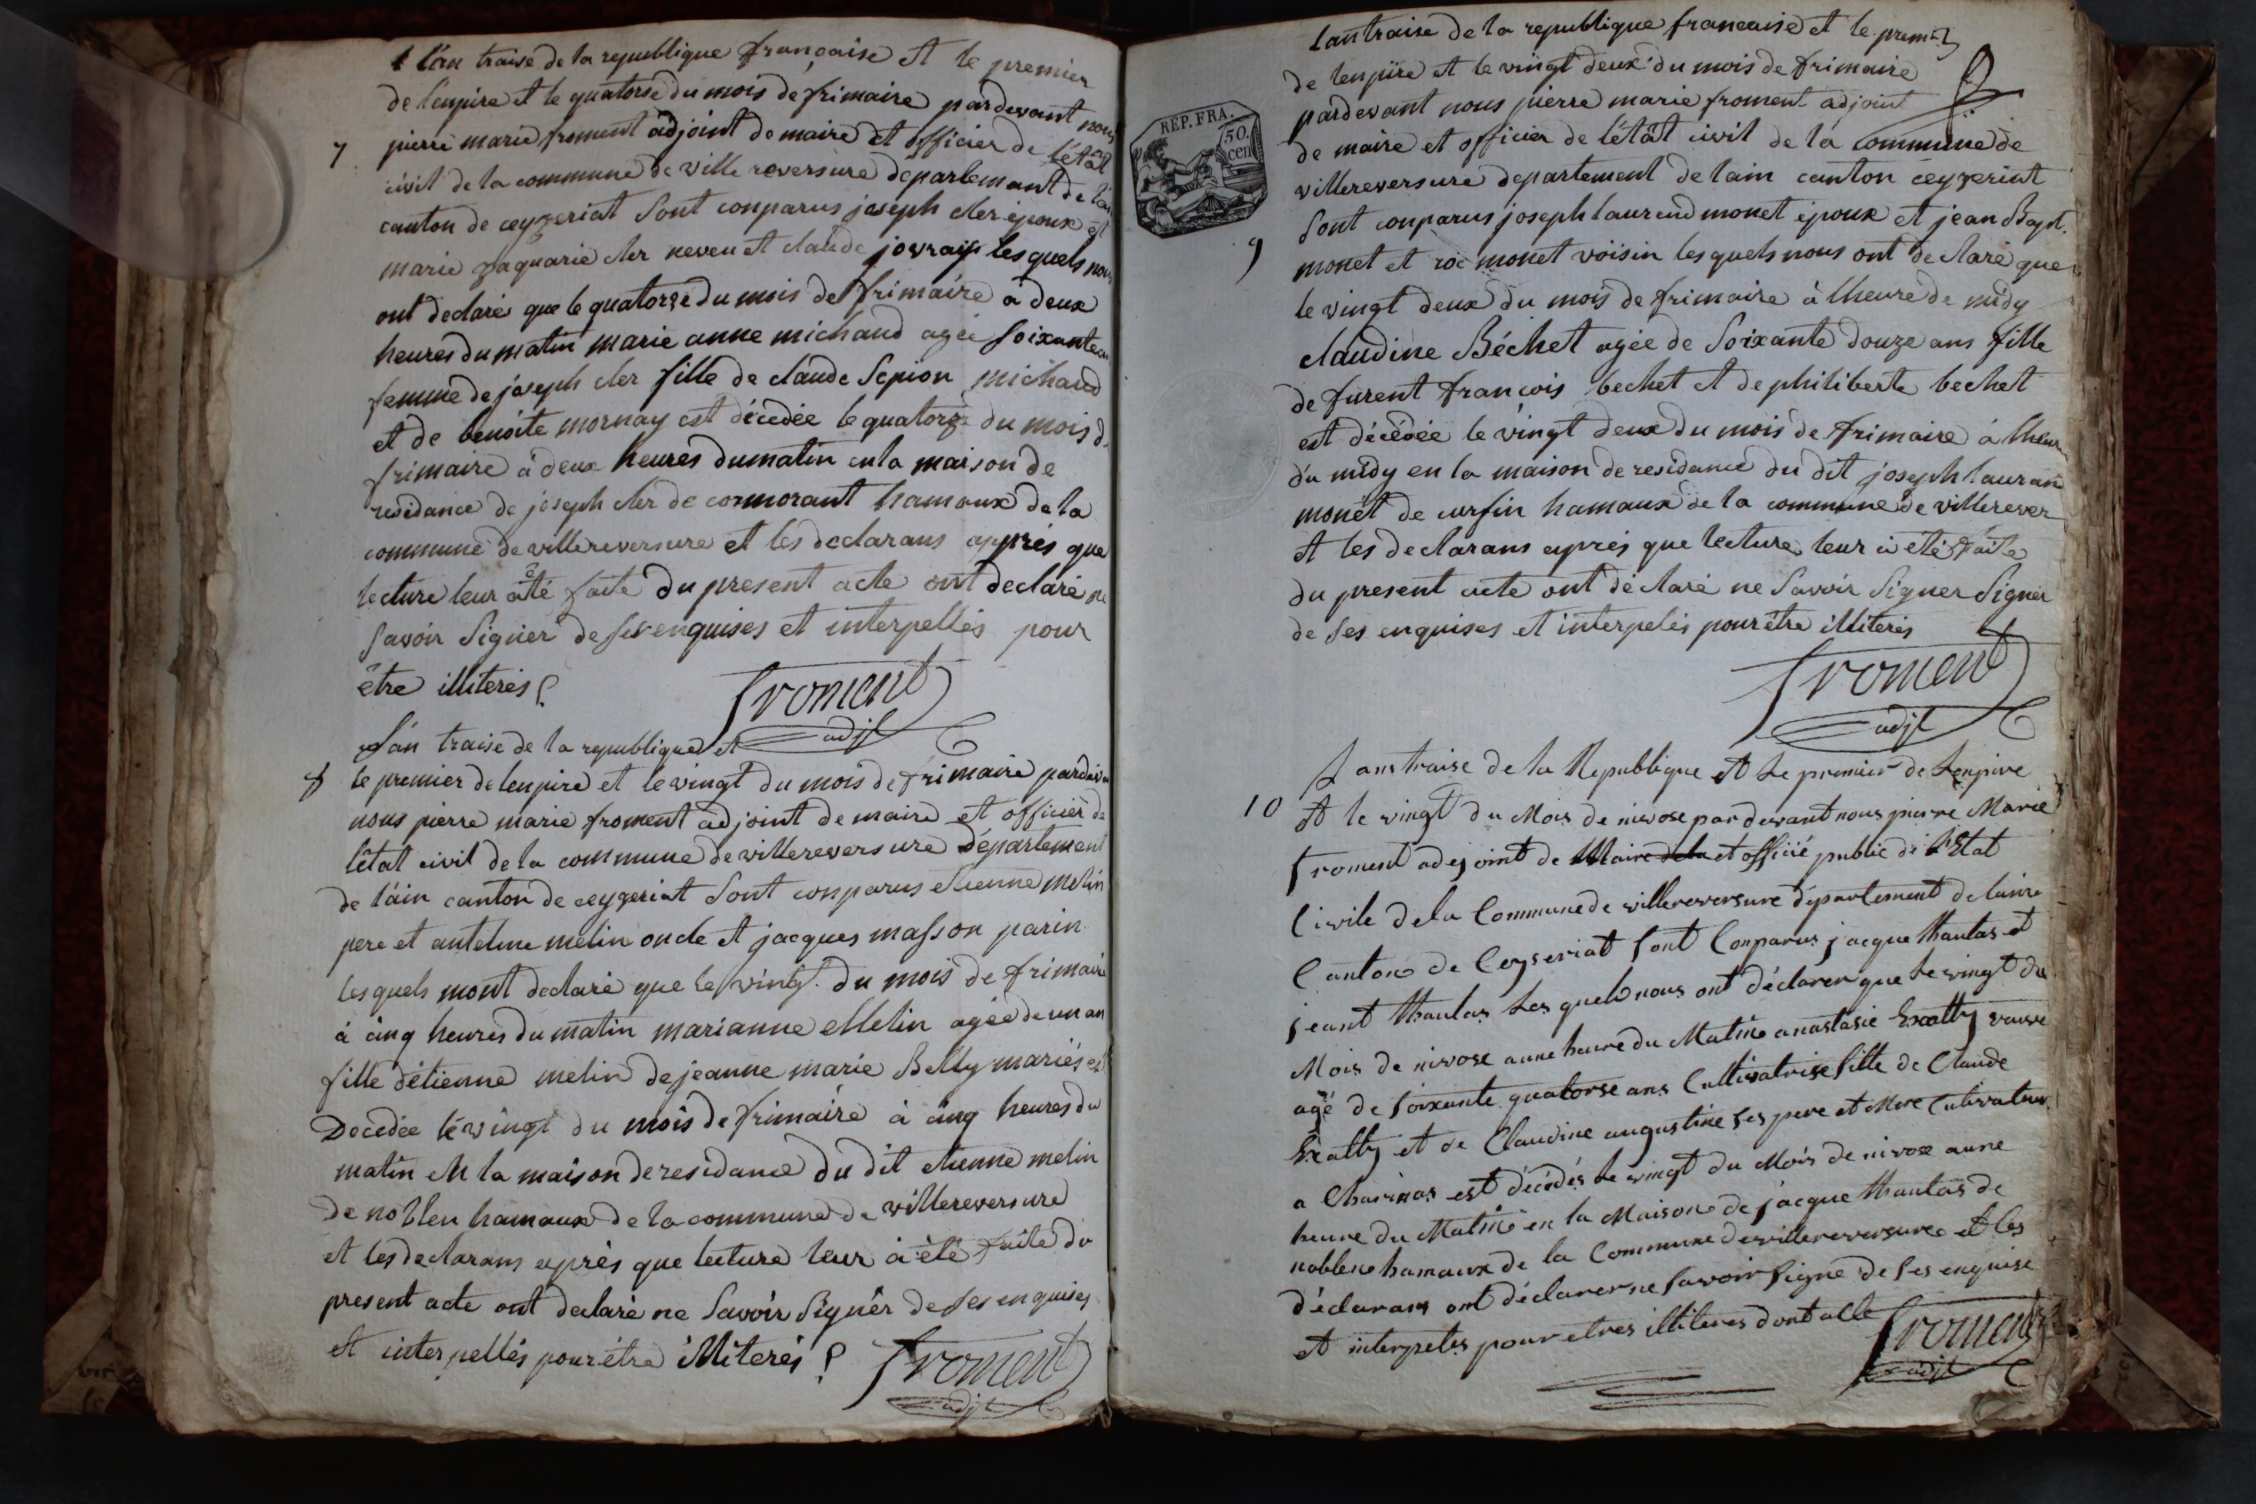 l'an traise de la republique française et le premier
de l'enpire et le quatorse du mois de frimaire pardevant nous
7 pierre marie froment adjoint de maire et officier de l'état
civil de la commune de ville reversure departemant de l'ain
canton de ceyzeriat sont conparus joseph cler époux et
marie zaquarie cler neveu et claude jovray les quels nous
ont declaré que le quatorze du mois de frimaire a deux
heures du matin marie anne michaud agée soixante
femme de joseph cler fille de claude Sepion michaud
et de benoite mornay est décedée le quatorze du mois de
frimaire à deux heures du matin en la maison de
residance de joseph cler de cormorant hamaux de la
commune de villereversure et les declarans apprés que
lecture leur a été faite du present acte ont declaré ne
savoir signer de ses enquises et interpellés pour
être illiterés
froment
adjt
L'an traise de la republique et
8 le premier de lenpire et le vingt du mois de frimaire pardevan
nous pierre marie froment adjoint de maire et officier de
l'état civil de la commune de villereversure département
de l'ain canton de ceyzeriat sont conparus etienne melin
pere et antelme melin oncle et jacques masson parin
les quels mont declaré que le vingt du mois de frimaire
à cinq heures du matin marianne Melin agée de un an
fille d'étienne melin de jeanne marie Belly mariés est
Decedée le vingt du mois de frimaire à cinq heures du
matin en la maison de residance du dit etienne melin
de noblen hamaux de la commune de villereversure
et les declarans après que lecture leur à été faite du
present acte ont declaré ne savoir signér de ses enquises
et interpellés pour étre illiterés
froment
adjt
lan traise de la republique francaise et le premier
de lenpire et le vingt deux du mois de frimaire
pardevant nous pierre marie froment adjoint
REP. FRA.
50. cen
de maire et officier de l'état civil de la commune de
villereversure departement de lain canton ceyzeriat
sont conparus joseph laurend monet époux et jean Bapt.
9 monet et roc monet voisin les quels nous ont declaré que
le vingt deux du mois de frimaire à lheure de midy
claudine Béchet agée de soixante douze ans fille
de furent françois bechet et de philiberte bechet
est décédée le vingt deux du mois de frimaire á lheur
du midy en la maison de residance du dit joseph lauran
monet de curfin hamaux de la commune de villerever
et les declarans aprés que lecture leur a été faite
du present acte ont déclaré ne savoir signer signer
de ses enquises et interpelés pour être illiterés
froment
adjt
Lans traise de la Republique et le premier de Lenpire
10 et le vingt du Mois de nivose par devant nous pierre Marie
froment adejoint de Maire dela et officié public de l'Etat
Civile dela Commune de villereversure département de lainr
Canton de Ceyseriat sont Conparus jacque thantas et
jeant thantas Les quels nous ont déclarer que Le vingt du
Mois de nivose a une heure du Matine anastasie vauve
agé de soixante quatorse ans Cultivatrise fille de Claude
et de Claudine augustine ses pere et Mere Cultivateur
a Chavinas est décédés Le vingt du Mois de nivose a une
heure du Matine en la Maisone de jacque thantas de
noblene hamaux de la Commune de villereversure et les
déclarans ont déclarer ne savoir signe de ses enquise
et interpeles pour etres illiteres dont acte
froment
adjt